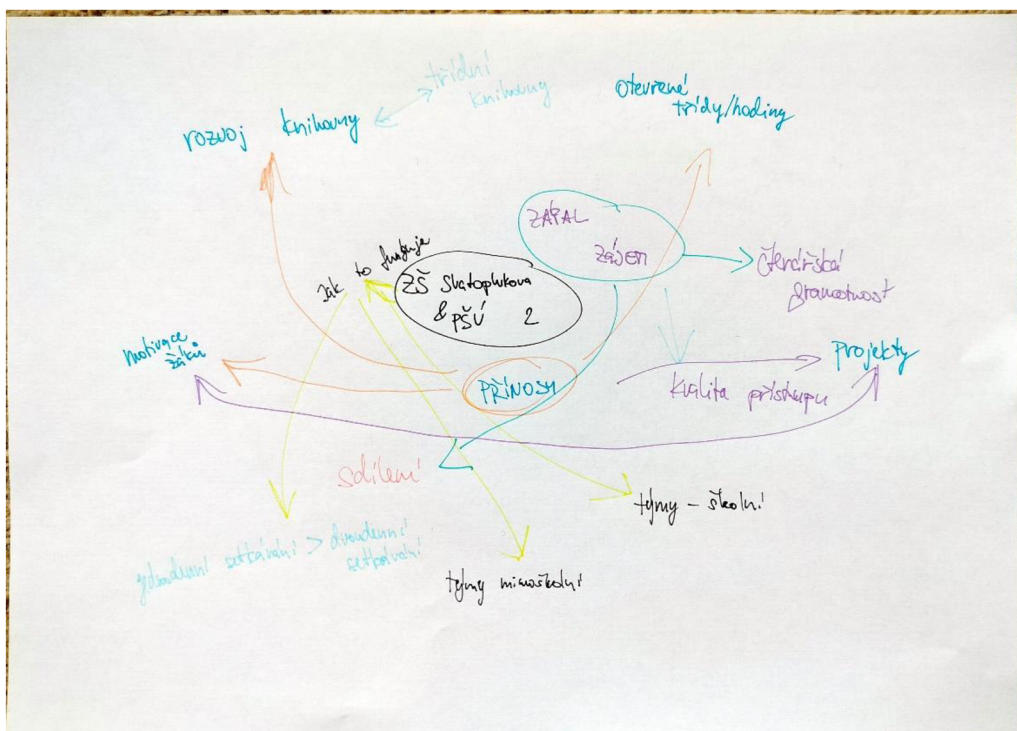 třídení
knihovny
rozvoj knihovny
otevřené
třídy/hodiny
ZÁPAL
ZÁJEM
čtenářská
gramotnost
Jak to funguje
ZŠ Svatoplukova
& PŠÚ 2
motivace
žáků
PŘÍNOSY
projekty
kvalita přístupu
sdílení
týmy - školní
jednodenní setkávání > dvoudenní
setkávání
týmy mimoškolní